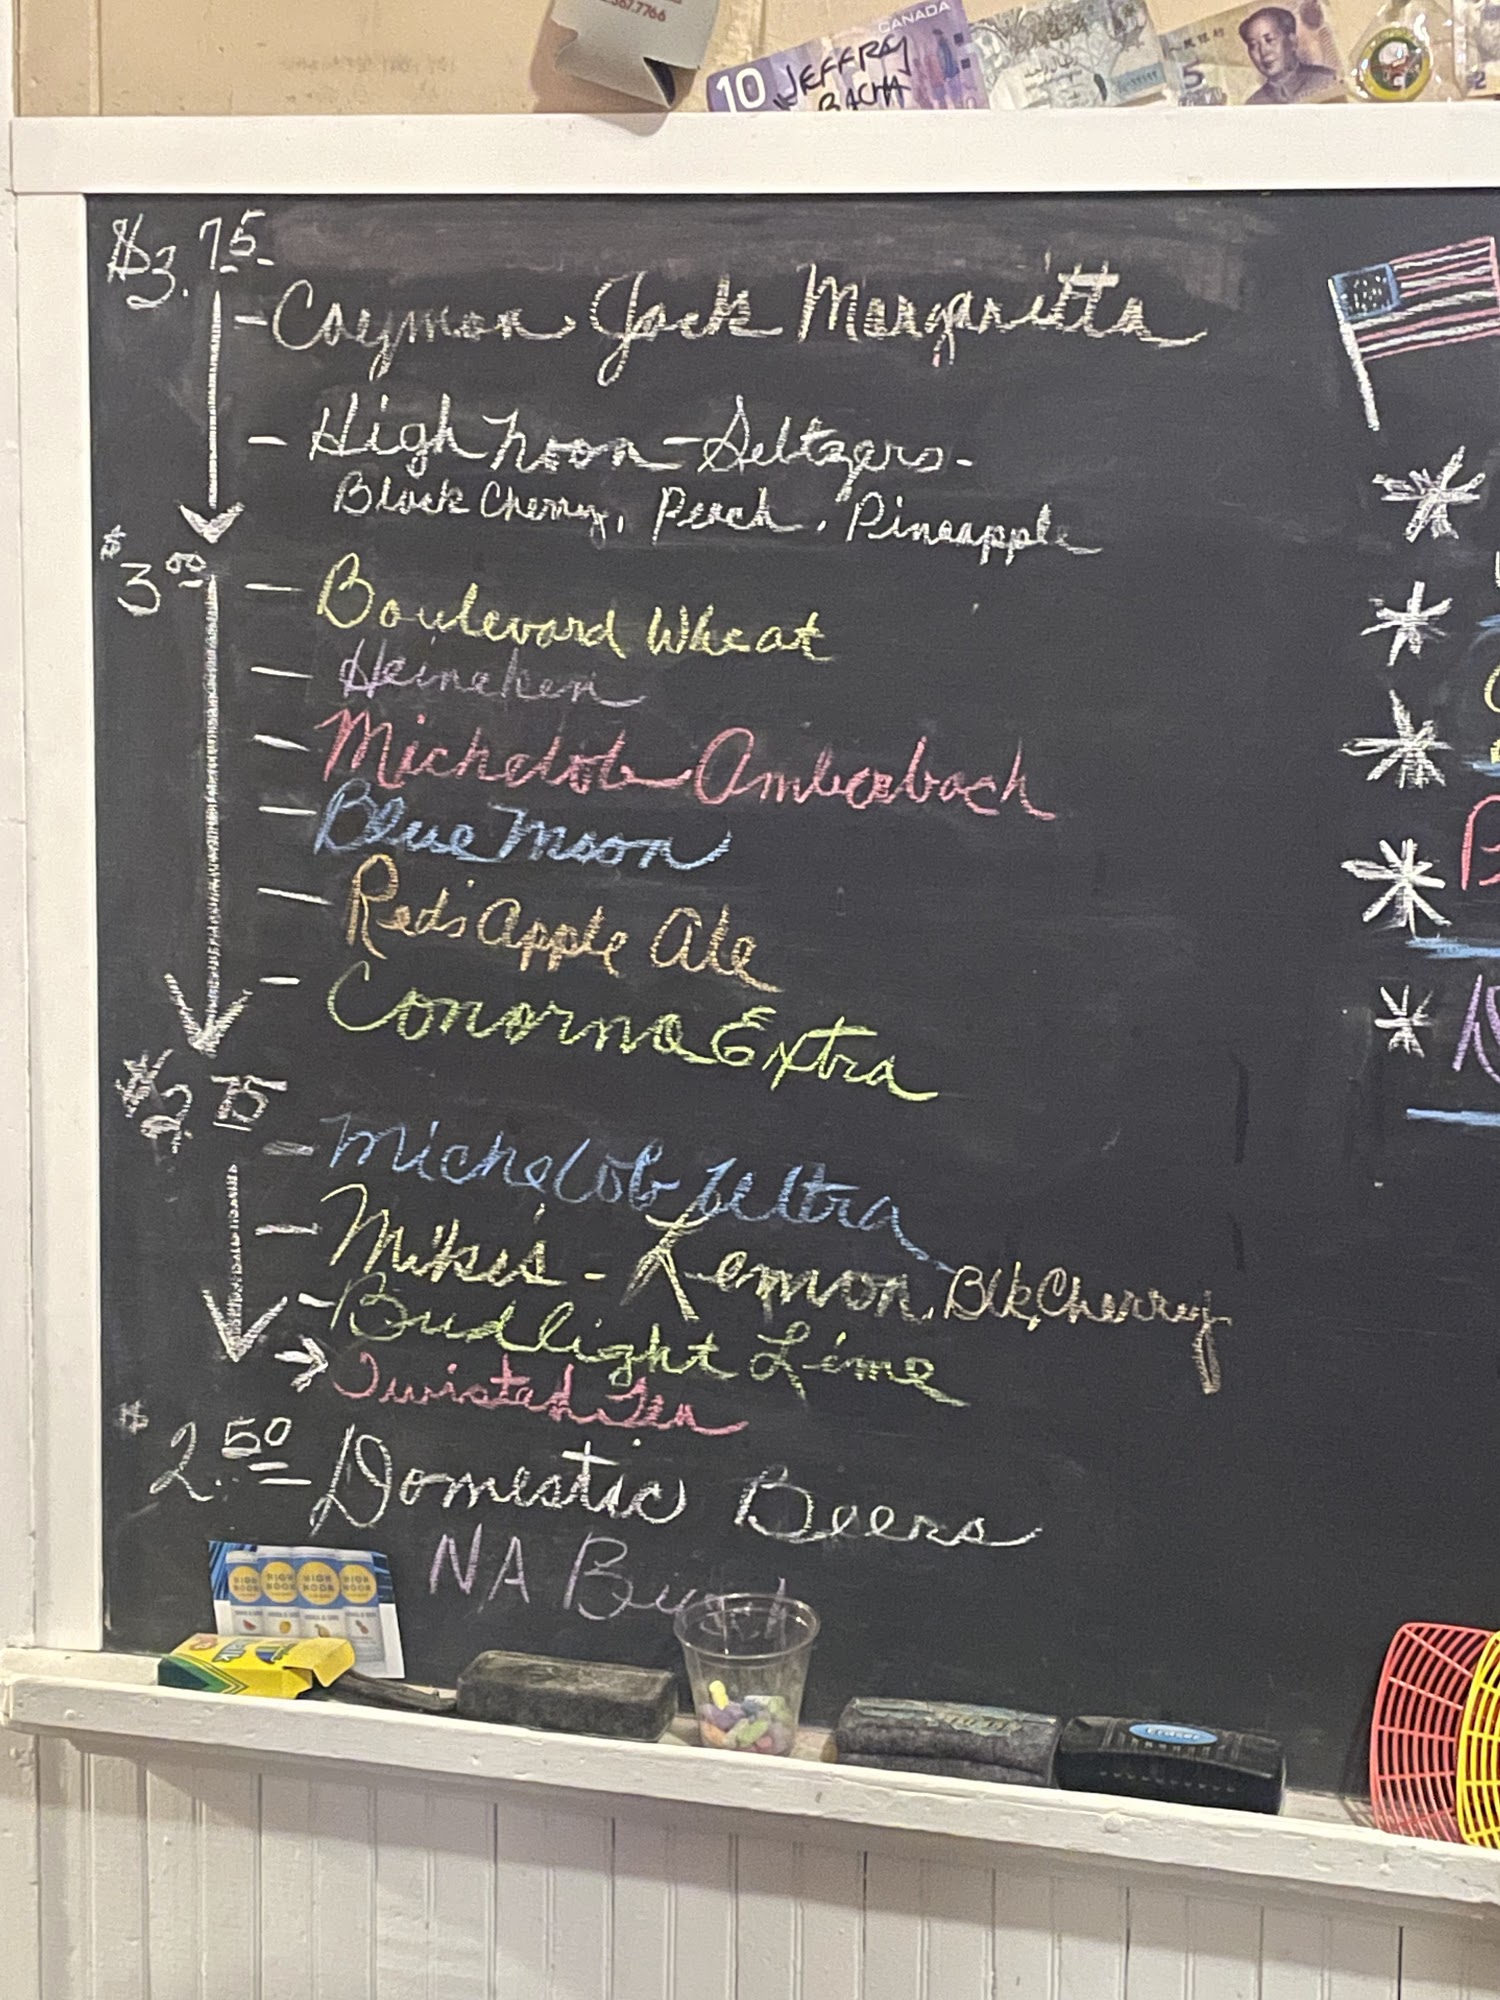 .567.7766
CANADA
10 JEFFREY
BACHA
5
$3.75
- Caymon Jack Margaritta
- High Noon - Seltzers-
Black Cherry, Peach, Pineapple
$3.00
- Boulevard Wheat
- Heineken
- Michelob Amberbock
- Blue Moon
- Red's Apple Ale
- Conorna Extra
$2.75
- Michelob Ultra
- Mike's - Lemon, Blk Cherry
- Budlight Lime
→ Twisted Tea
$2.50 - Domestic Beers
NA Bud
HIGH NOON HIGH NOON HIGH NOON HIGH NOON
Eraser